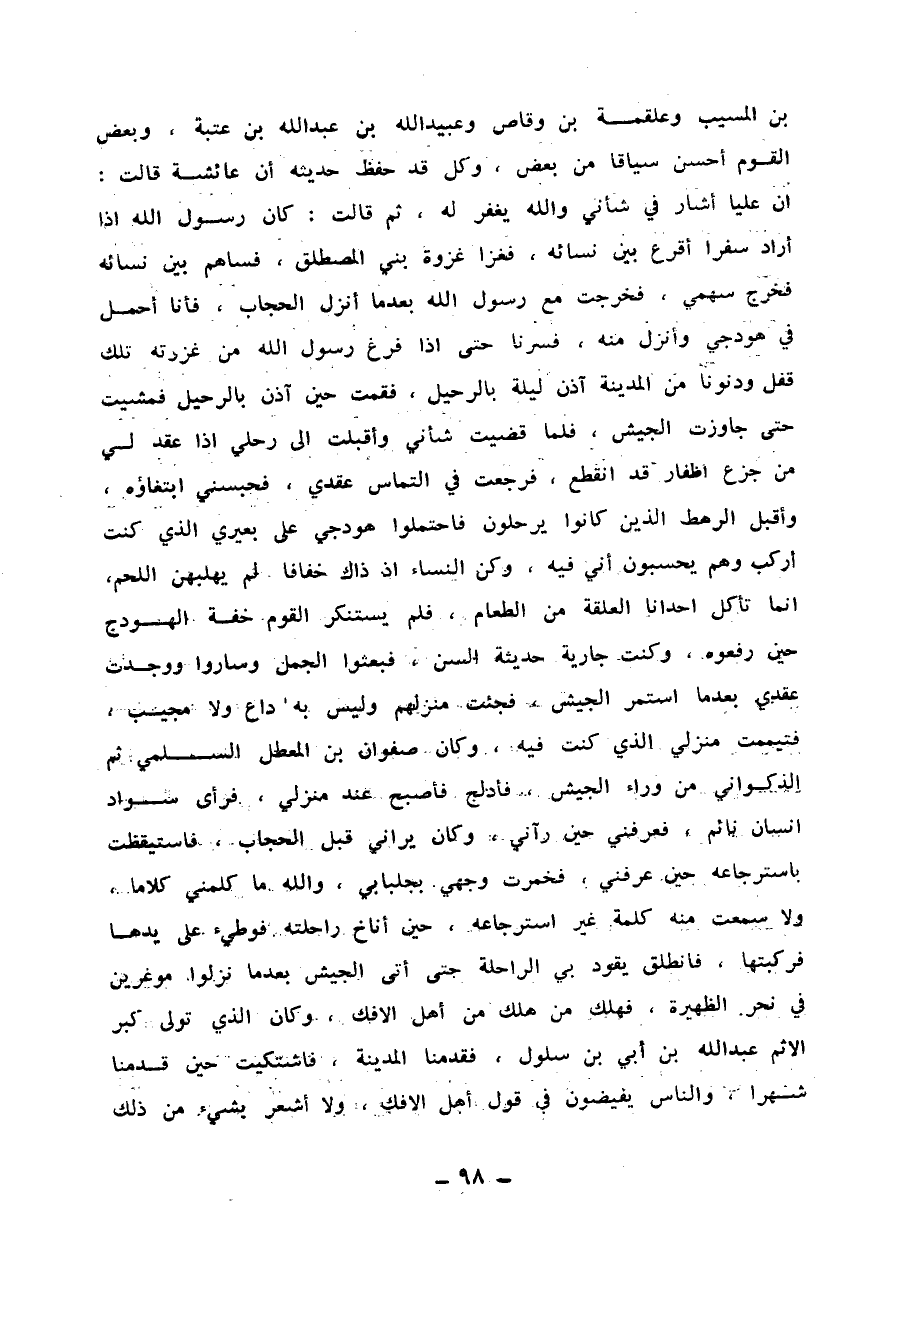 بن المسيب وعلقمـــة بن وقاص وعبيدالله بن عبدالله بن عتبة ، وبعض
القـوم أحسن سياقا من بعض ، وكل قد حفظ حديثه أن عائشـــة قالت :
ان عليا أشار في شأني والله يغفر له ، ثم قالت : كان رســـول الله اذا
أراد سفرا أقرع بين نسائه ، فغزا غزوة بني المصطلق ، فساهم بين نسائه
فخرج سهمي ، فخرجت مع رسول الله بعدما أنزل الحجاب ، فأنا أحمـل
في هودجي وأنزل منه ، فسرنا حتى اذا فرغ رسول الله من غزرته تلك
قفل ودنونا من المدينة آذن ليلة بالرحيل ، فقمت حين آذن بالرحيل فمشيت
حتى جاوزت الجيش ، فلما قضيت شأني وأقبلت الى رحلي اذا عقد لـــي
من جزع اظفار قد انقطع ، فرجعت في التماس عقدي ، فحبسني ابتغاؤه ،
وأقبل الرهط الذين كانوا يرحلون فاحتملوا هودجي على بعيري الذي كنت
أركب وهم يحسبون أني فيه ، وكن النساء اذ ذاك خفافا لم يهلبهن اللحم،
انما تأكل احدانا العلقة من الطعام ، فلم يستنكر القوم خفـــة الهــودج
حين رفعوه ، وكنت جارية حديثة السن ، فبعثوا الجمل وساروا ووجــدت
عقدي بعدما استمر الجيش ، فجئت منزلهم وليس به داع ولا مجيــب ،
فتيممت منزلي الذي كنت فيه ، وكان صفوان بن المعطل الســـلمي ثم
الذكـواني من وراء الجيش ، فأدلج فأصبح عند منزلي ، فرأى ســـواد
انسان نائم ، فعرفني حين رآني ، وكان يراني قبل الحجاب ، فاستيقظت
باسترجاعه حين عرفني ، فخمرت وجهي بجلبابي ، والله ما كلمني كلاما ،
ولا سمعت منه كلمة غير استرجاعه ، حين أناخ راحلته فوطيء على يدهــا
فركبتها ، فانطلق يقود بي الراحلة حتى أتى الجيش بعدما نزلوا موغرين
في نحر الظهيرة ، فهلك من هلك من أهل الافك ، وكان الذي تولى كبر
الاثم عبدالله بن أبي بن سلول ، فقدمنا المدينة ، فاشتكيت حين قــدمنا
شــهرا ، والناس يفيضون في قول أهل الافك ، ولا أشعر بشيء من ذلك
– ٩٨ –